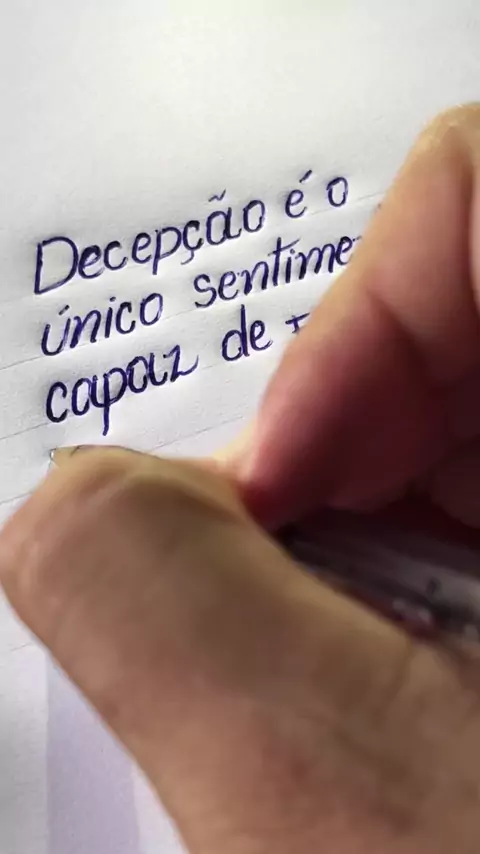 Decepção é o
único sentime
capaz de